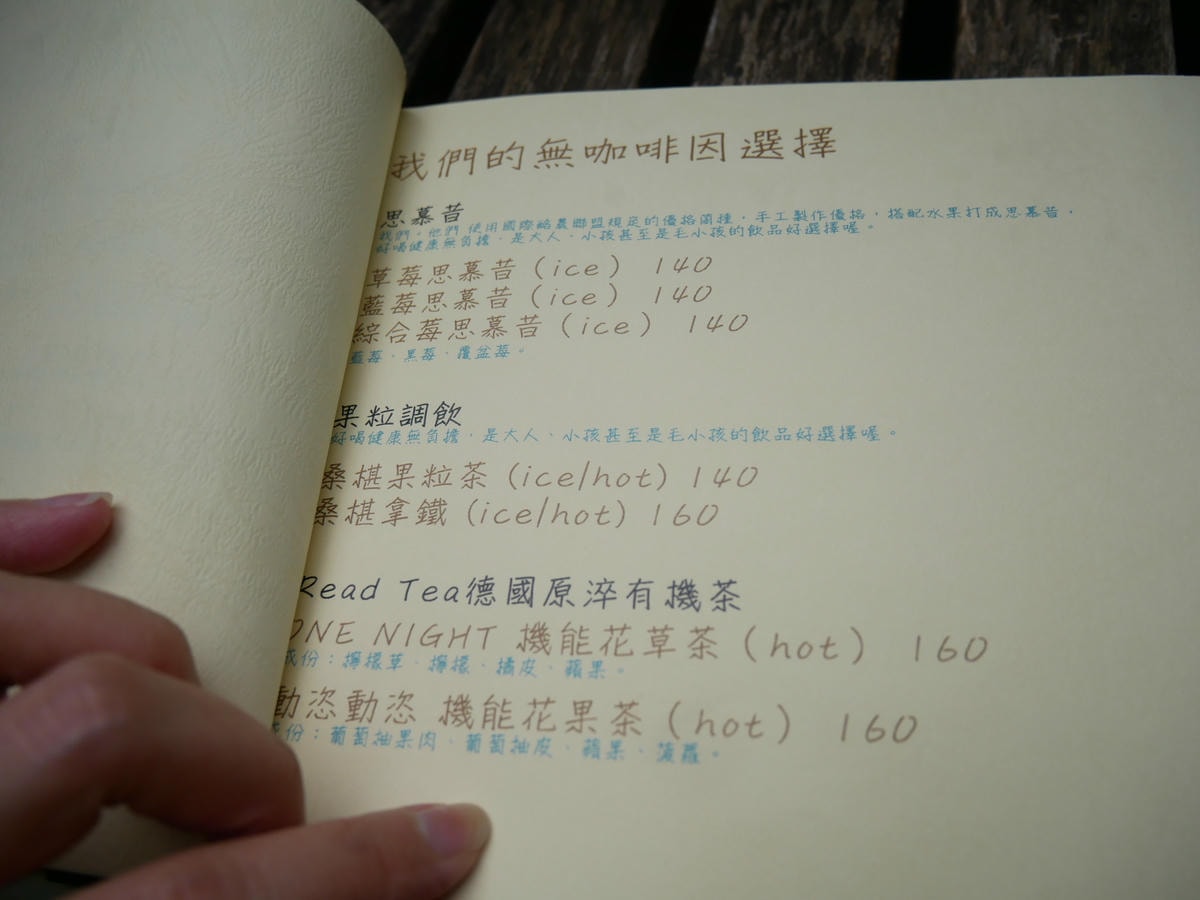 我們的無咖啡因選擇
思慕昔
我們。他們 使用國際酪農聯盟規定的優格菌種，手工製作優格，搭配水果打成思慕昔，
好喝健康無負擔，是大人、小孩甚至是毛小孩的飲品好選擇喔。
草莓思慕昔（ice） 140
藍莓思慕昔（ice） 140
綜合莓思慕昔（ice） 140
藍莓、黑莓、覆盆莓。
果粒調飲
好喝健康無負擔，是大人、小孩甚至是毛小孩的飲品好選擇喔。
桑椹果粒茶 (ice/hot) 140
桑椹拿鐵 (ice/hot) 160
Read Tea德國原淬有機茶
ONE NIGHT 機能花草茶（hot） 160
成份：檸檬草、檸檬、橘皮、蘋果。
動恣動恣 機能花果茶（hot） 160
成份：葡萄柚果肉、葡萄柚皮、蘋果、菠蘿。